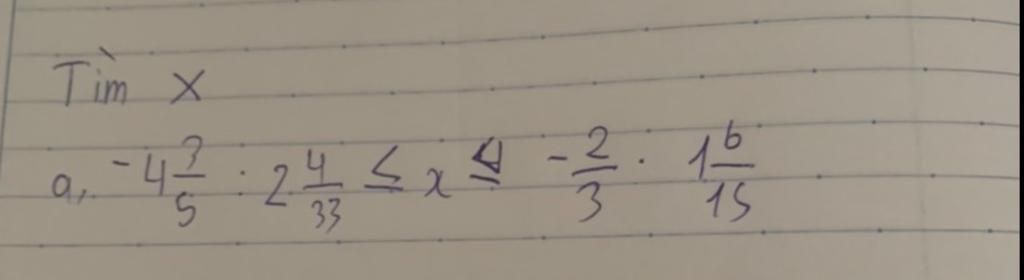 Tìm x
a, -4 3/5 : 2 4/33 ≤ x ≤ -2/3 . 1 6/15